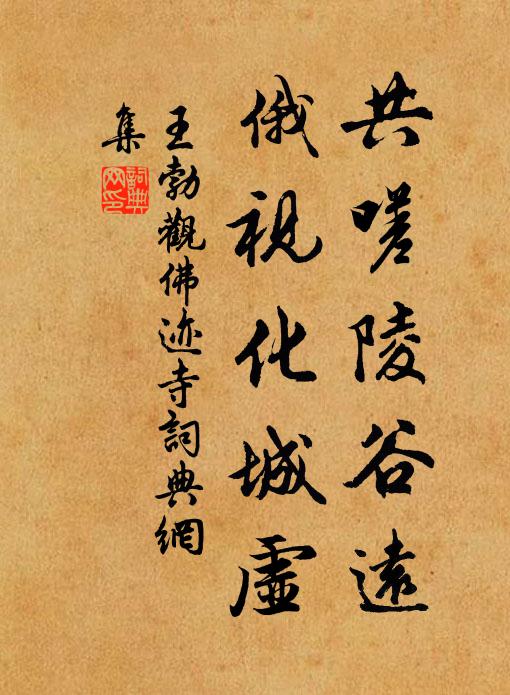 共嗟陵谷遠
俄視化城虛
王勃觀佛迹寺詞典網
集
詞典
网印